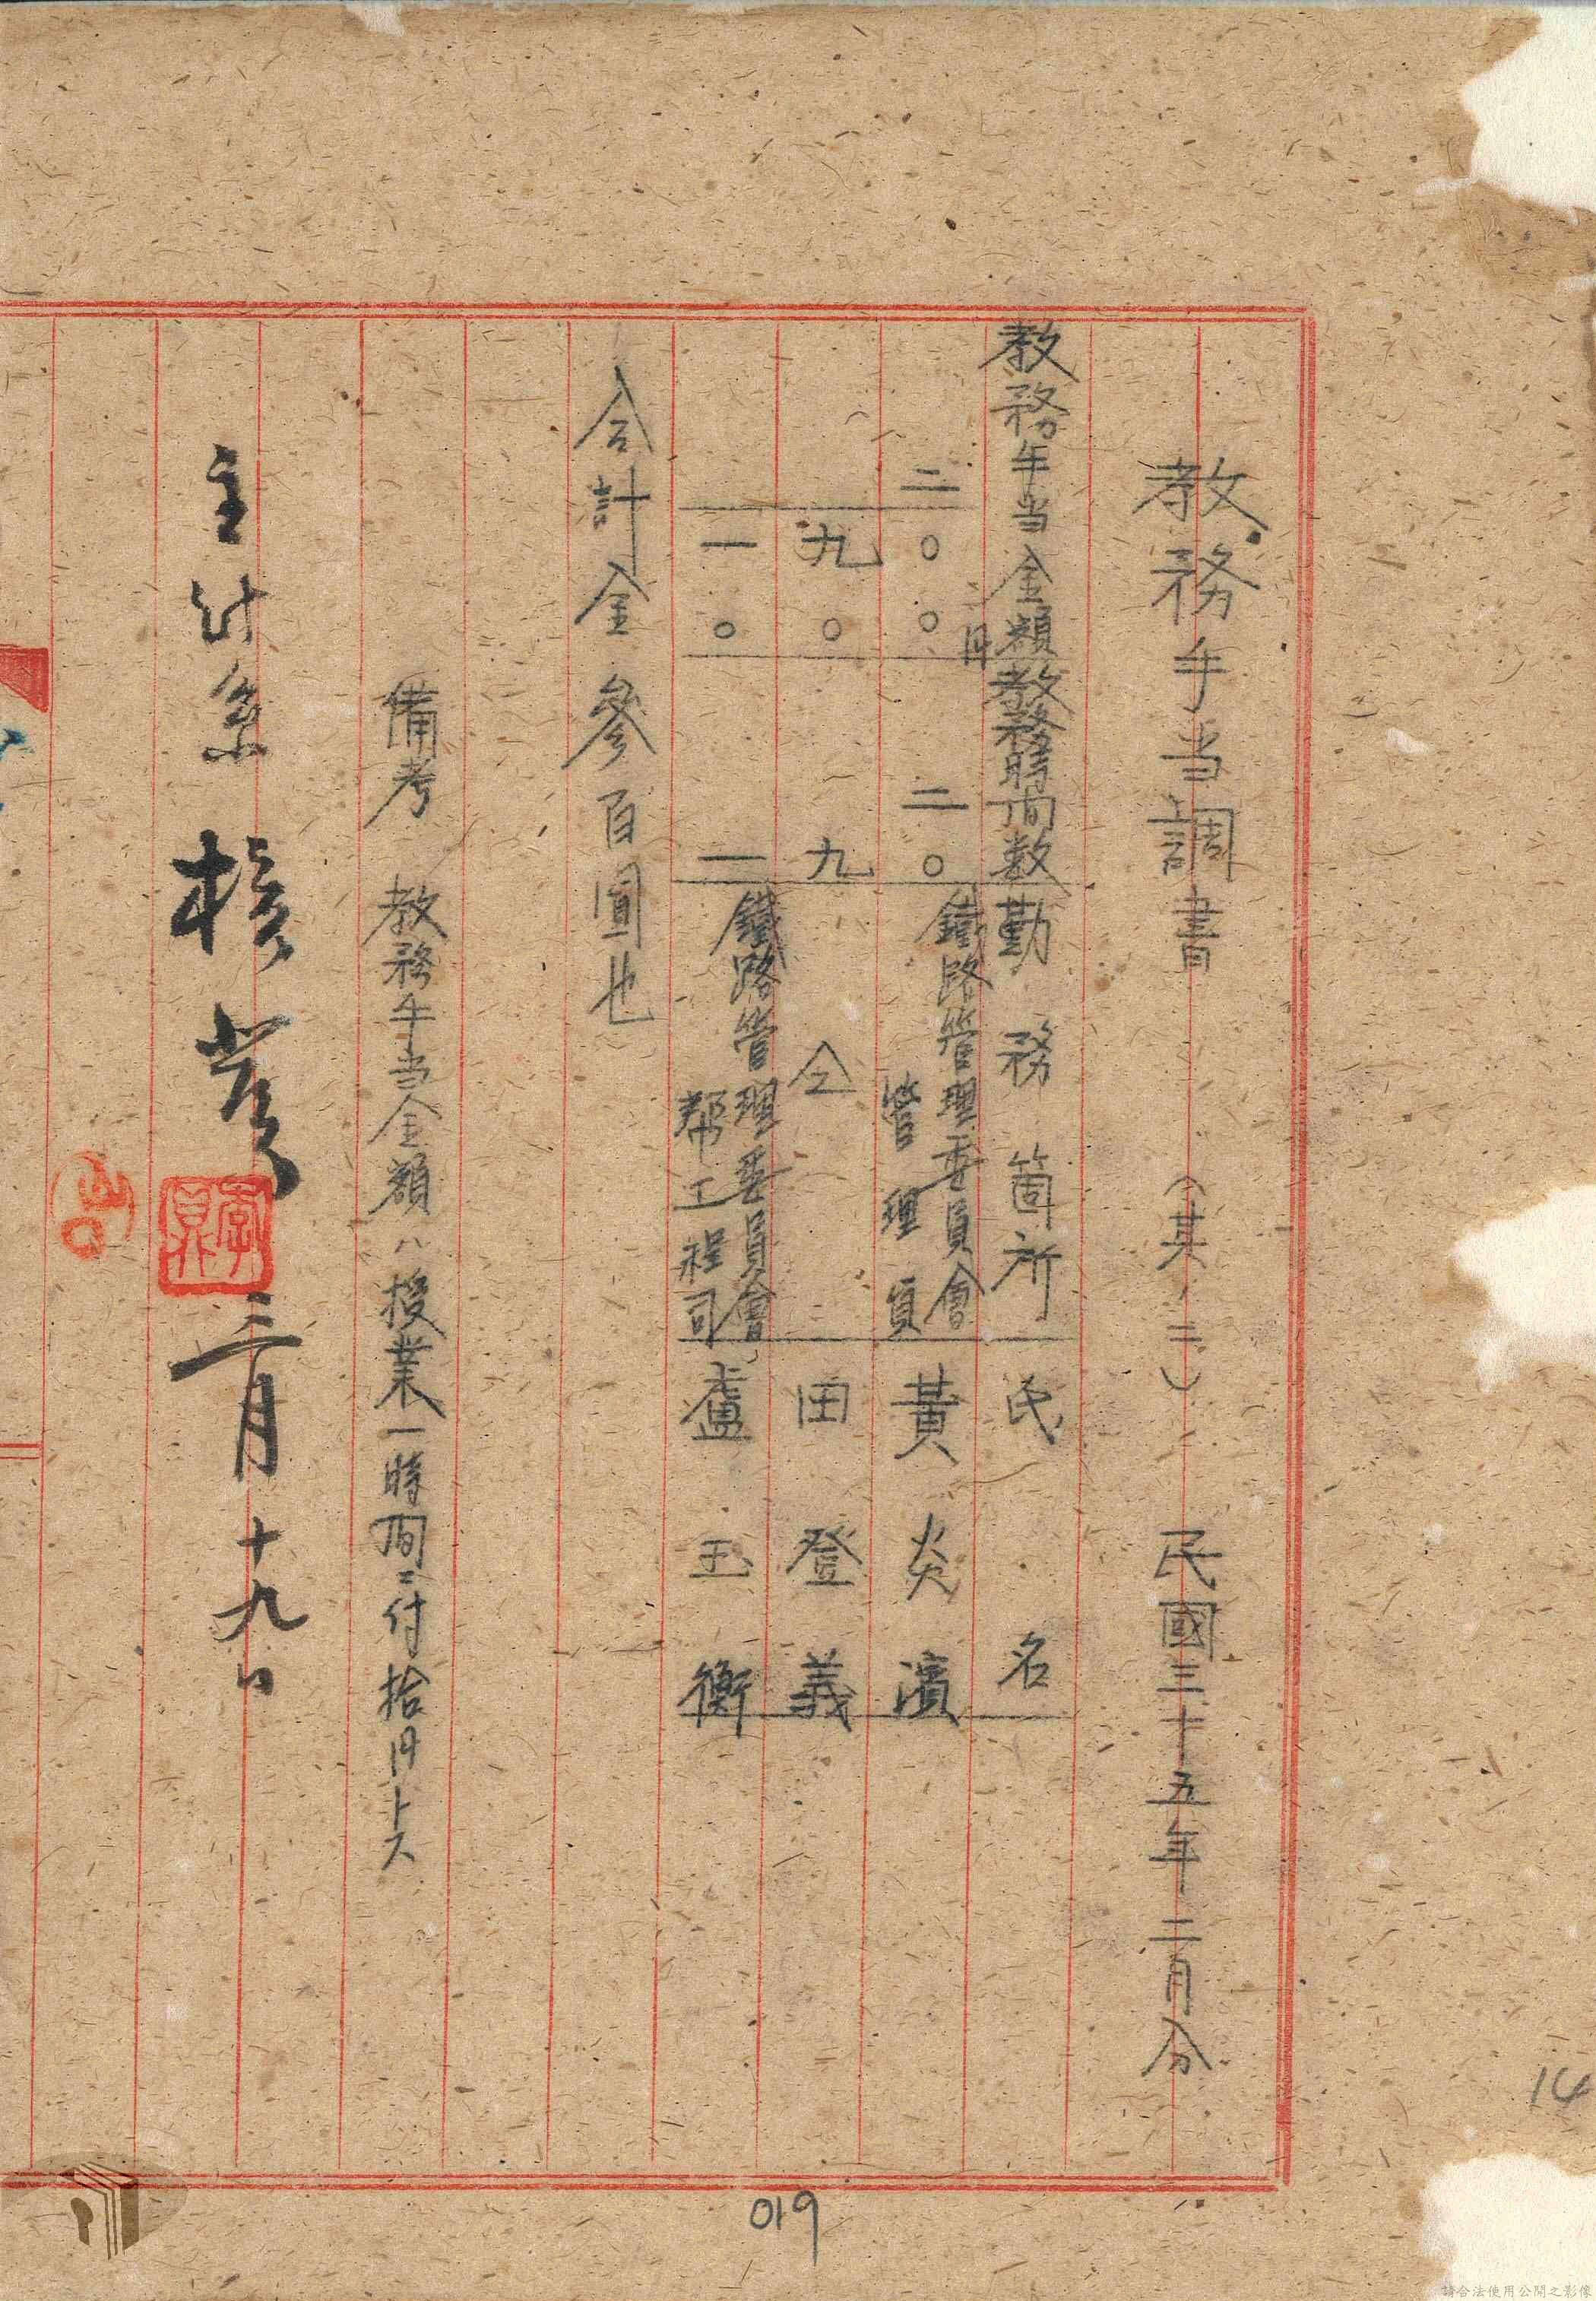 教務手当調書　（其ノ二）　民國三十五年二月分
教務手当金額　教務時間数　勤務箇所　氏名
二〇〇円　二〇　鐵路管理委員會管理員　黃炎濱
九〇　九　仝　田登義
一〇　一　鐵路管理委員會帮工程司　盧玉衡
合計金參百圓也
備考　教務手当金額ハ授業一時間ニ付拾円トス
主计系　核
三月十九日
019
14
請合法使用公開之影像